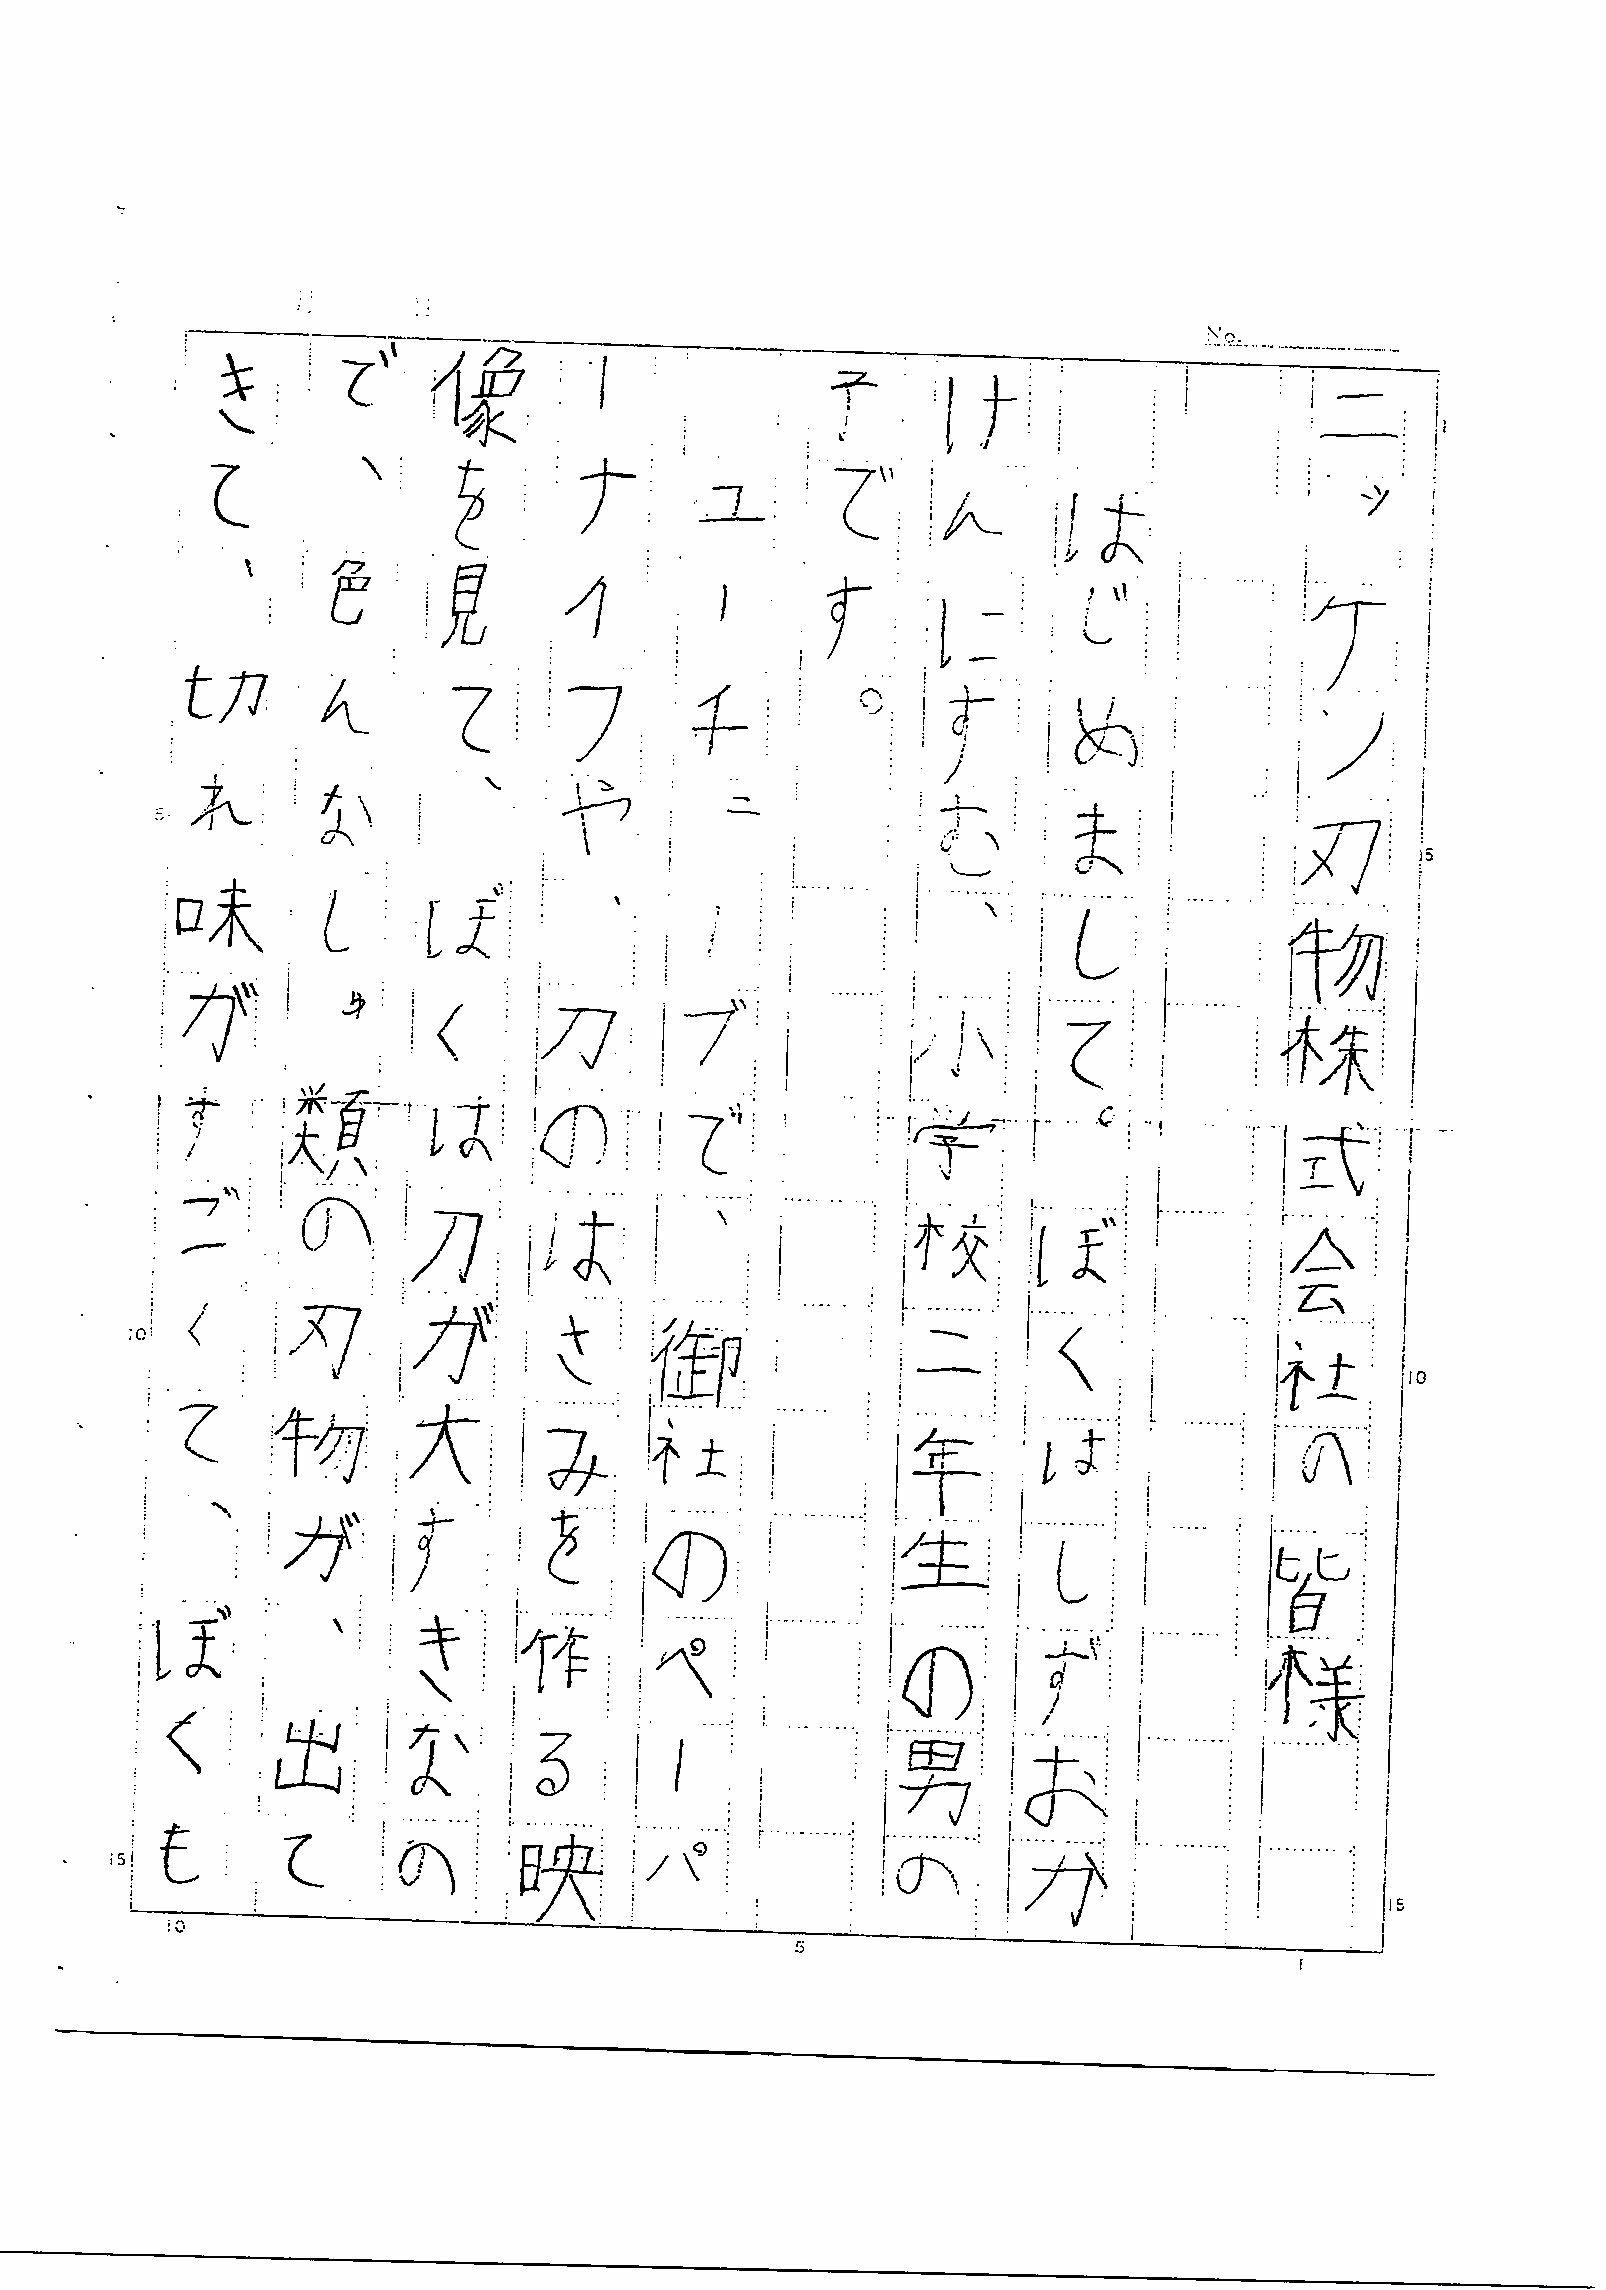 No.
ニッケン刃物株式会社の皆様
はじめまして。ぼくはしずおか
けんにすむ、小学校二年生の男の
子です。
ユーチューブで、御社のペーパ
ーナイフや、刀のはさみを作る映
像を見て、ぼくは刀が大すきなの
で、色んなしゅ類の刃物が、出て
きて、切れ味がすごくて、ぼくも
1
5
10
15
1
5
10
5
10
15